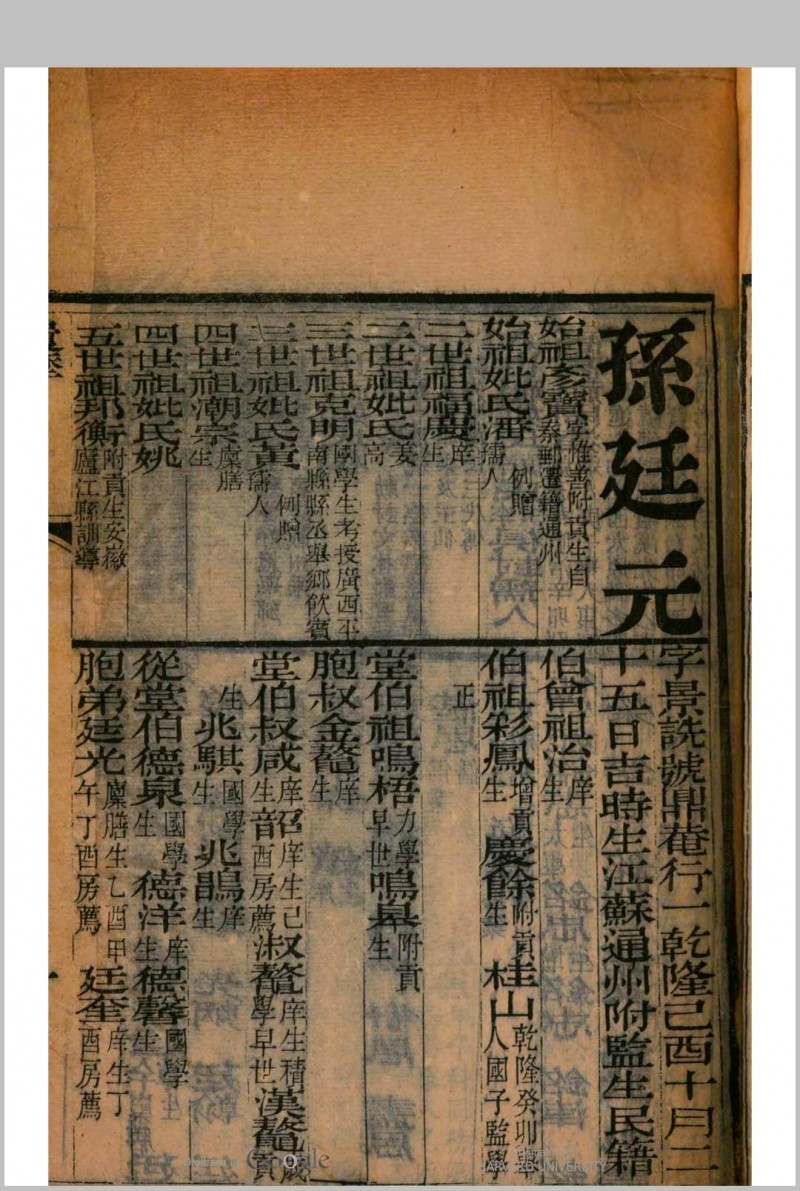 孫廷元
字景詵號鼎菴行一乾隆己酉十月二
十五日吉時生江蘇通州附監生民籍
始祖彥寶字惟善附貢生自泰郵遷籍通州
始祖妣氏潘例贈孺人
二世祖福慶庠生
二世祖妣氏姜高
三世祖克明國學生考授廣西平南縣縣丞舉鄉飲賓
三世祖妣氏黃例贈孺人
四世祖潮宗廩膳生
四世祖妣氏姚
五世祖邦衡附貢生安徽廬江縣訓導
伯曾祖治庠生
伯祖彩鳳增貢生慶餘附貢生桂山乾隆癸卯舉人國子監學
正
堂伯祖鳴梧力學早世鳴臯附貢生
胞叔金鼇庠生
堂伯叔咸庠生韶庠生己酉房薦淑鼇庠生積學早世漢鼇歲貢
生兆騏國學生兆鵾庠生
從堂伯德泉國學生德洋庠生德馨國學生
胞弟廷光廩膳生乙酉甲午丁酉房薦廷奎庠生丁酉房薦